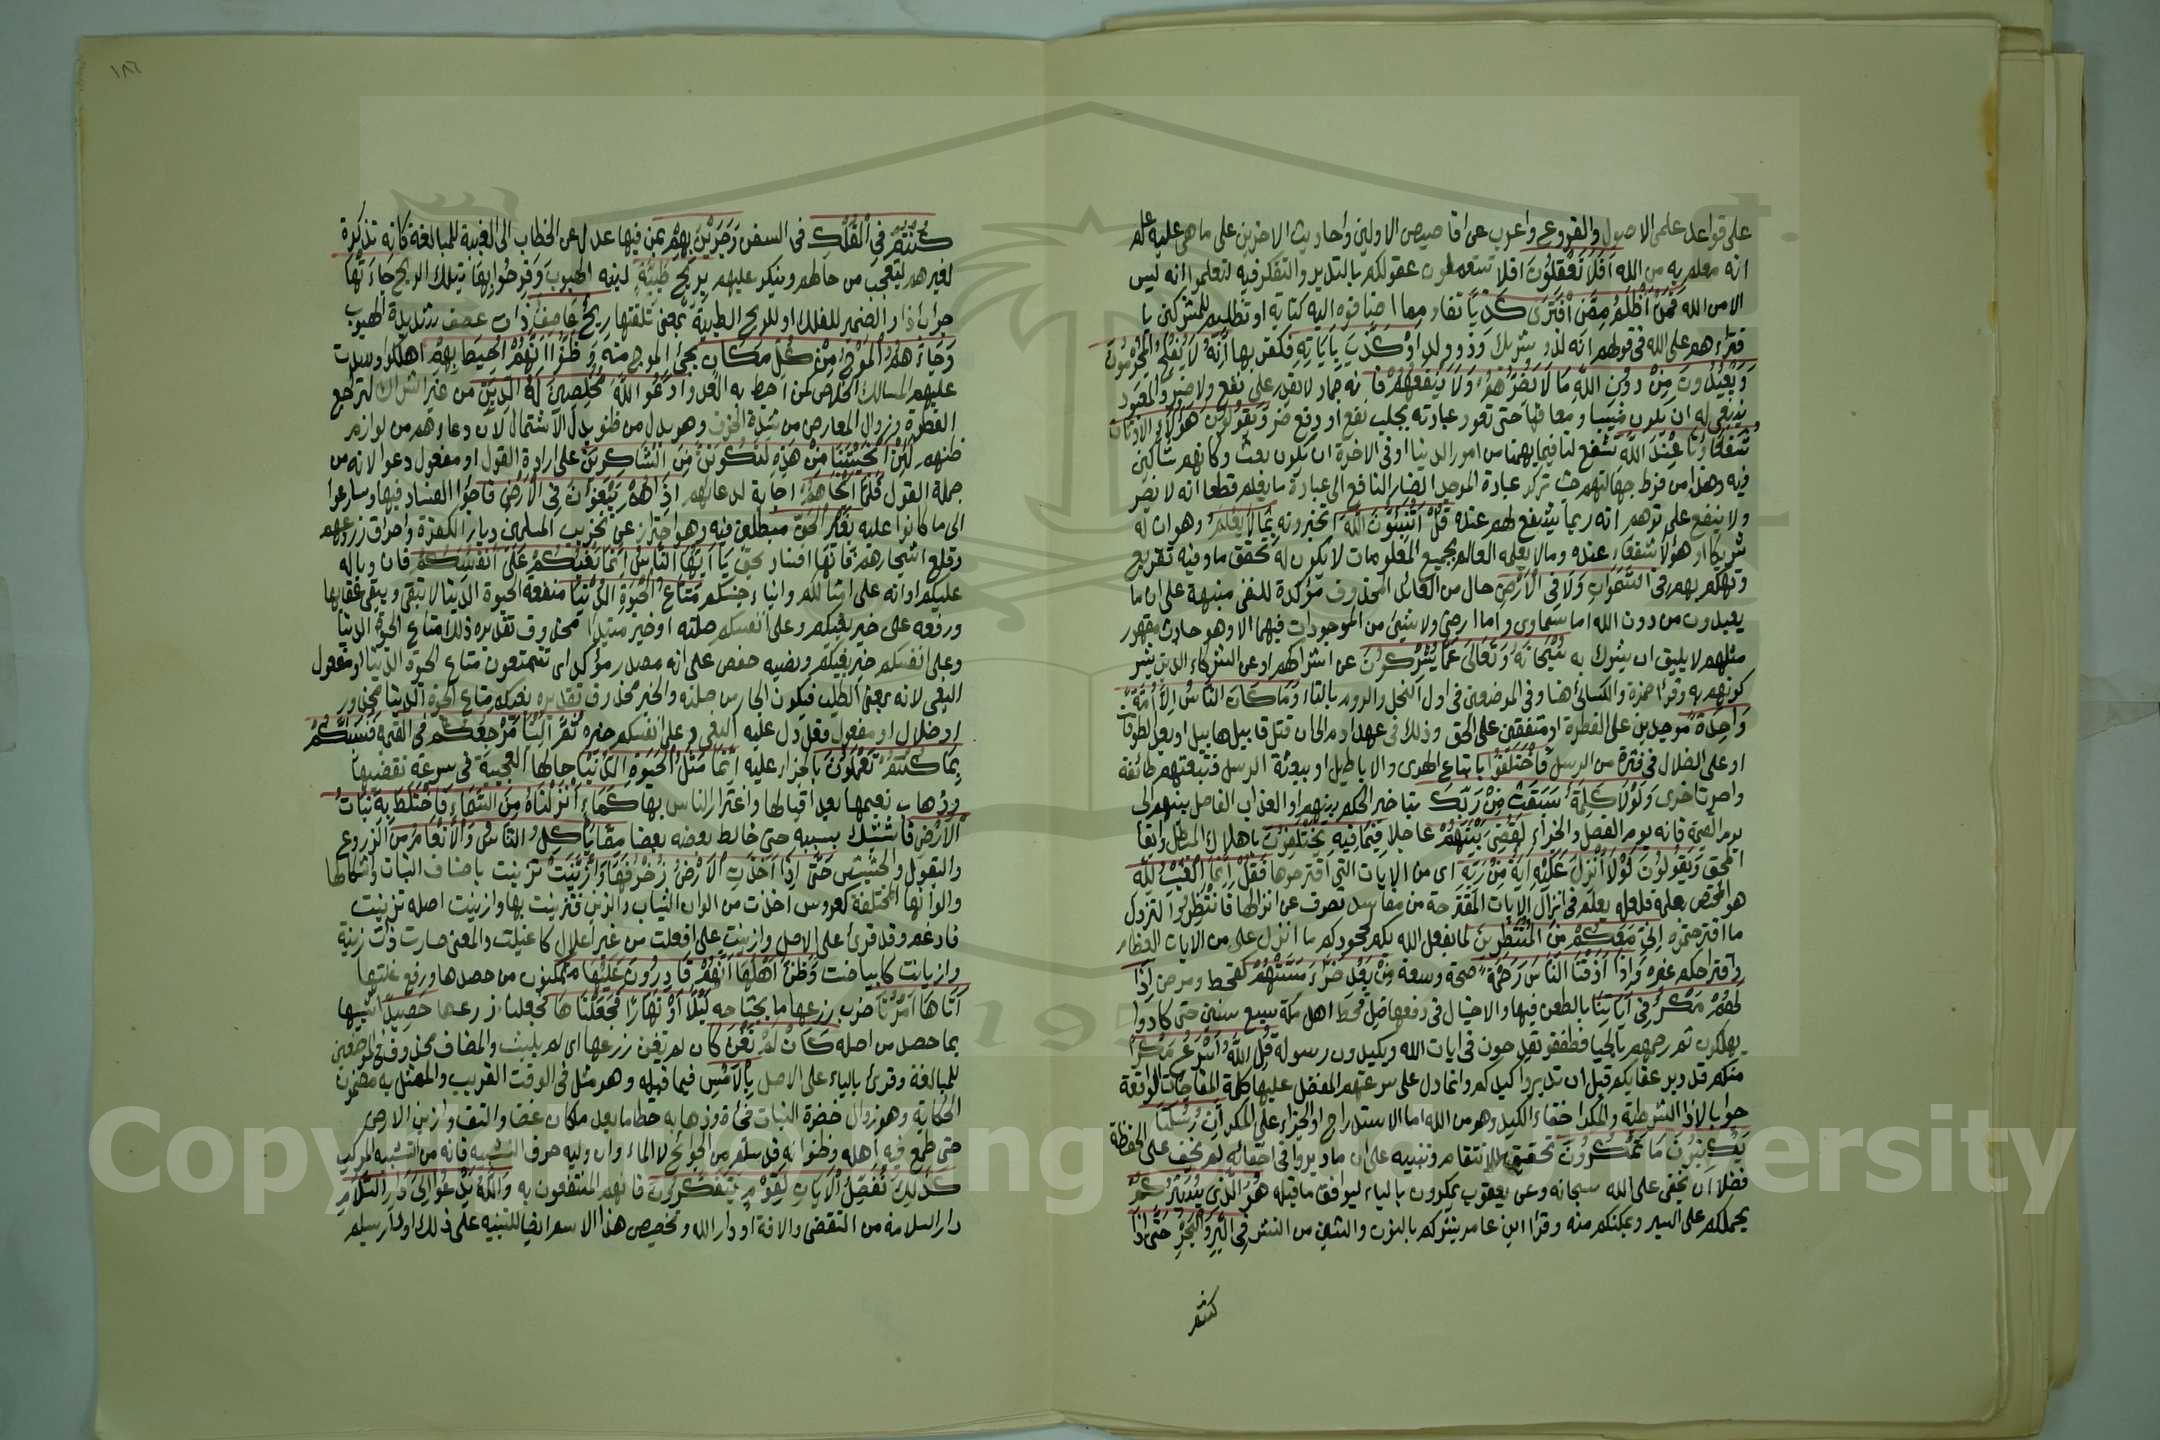 على قواعد علمي الاصول والفروع واعرب عن اقاصيص الاولين وأحاديث الاخرين على ما هي عليه علم
انه معلم به من الله أَفَلَا تَعْقِلُونَ افلا تستعملون عقولكم بالتدبر والتفكر فيه لتعلموا انه ليس
الا من الله فَمَنْ أَظْلَمُ مِمَّنِ افْتَرَى كَذِبًا تفاد مما اضافوه اليه كناية او تظليم للمشركين با
فترائهم على الله في قولهم انه لذو شريك وذو ولد اَوْ كَذَّبَ بِآيَاتِهِ فكفر بها اِنَّهُ لَا يُفْلِحُ الْمُجْرِمُونَ
وَيَعْبُدُونَ مِنْ دُونِ اللَّهِ مَا لَا يَضُرُّهُمْ وَلَا يَنْفَعُهُمْ فانه جماد لا يقدر على نفع ولا ضر والمعبود
ينبغي له ان يكون مثيبا ومعاقبا حتى تعود عبادته بجلب نفع او دفع ضر وَيَقُولُونَ هَؤُلَاءِ الاوثان
شُفَعَاؤُنَا عِنْدَ اللَّهِ تشفع لنا فيما يهمنا من امور الدنيا او في الاخرة ان يكون بعث وكانهم شاكين
فيه وهذا من فرط جهالتهم حيث تركوا عبادة الموجد الضار النافع الى عبادة ما يعلم قطعا انه لا يضر
ولا ينفع على توهم انه ربما يشفع لهم عنده قُلْ أَتُنَبِّئُونَ اللَّهَ اتخبرونه بِمَا لَا يَعْلَمُ وهو ان له
شريكا او هؤلاء شفعاء عنده وما لا يعلمه العالم بجميع المعلومات لا يكون له تحقق ما وفيه تقريع
وتهكم بهم فِي السَّمَوَاتِ وَلَا فِي الْأَرْضِ حال من العائد المحذوف مؤكدة للنفي منبهة على ان ما
يعبدون من دون الله اما سماوي واما ارضي ولا شيئ من الموجودات فيهما الا وهو حادث مقهور
مثلهم لا يليق ان يشرك به سُبْحَانَهُ وَتَعَالَى عَمَّا يُشْرِكُونَ عن اشراكهم او عن الشركاء الذين يشر
كونهم به وقرا حمزة والكسائي هنا وفي الموضعين في اول النحل والروم بالتاء وَمَا كَانَ النَّاسُ اِلَّا أُمَّةً
وَاحِدَةً موحدين على الفطرة او متفقين على الحق وذلك في عهد ادم الى ان قتل قابيل هابيل او بعد الطوفان
او على الضلال في فترة من الرسل فَاخْتَلَفُوا باتباع الهدى والاباطيل او ببعثة الرسل فتبعتهم طائفة
واصرت اخرى وَلَوْلَا كَلِمَةٌ سَبَقَتْ مِنْ رَبِّكَ بتاخير الحكم بينهم او العذاب الفاصل بينهم الى
يوم القيمة فانه يوم الفصل والجزاء لَقُضِيَ بَيْنَهُمْ عاجلا فِيمَا فِيهِ يَخْتَلِفُونَ باهلاك المبطل وابقاء
المحق وَيَقُولُونَ لَوْلَا أُنْزِلَ عَلَيْهِ آيَةٌ مِنْ رَبِّهِ اى من الايات التي اقترحوها فَقُلْ إِنَّمَا الْغَيْبُ لِلَّهِ
هو المختص بعلمه فلعله يعلم في انزال الايات المقترحة من مفاسد تصرف عن انزالها فَانْتَظِرُوا لنزول
ما اقترحتموه إِنِّي مَعَكُمْ مِنَ الْمُنْتَظِرِينَ لما يفعل الله بكم بجحودكم ما انزل علي من الايات العظام
واقتراحكم غيره وَإِذَا أَذَقْنَا النَّاسَ رَحْمَةً صحة وسعة مِنْ بَعْدِ ضَرَّاءَ مَسَّتْهُمْ كقحط ومرض إِذَا
لَهُمْ مَكْرٌ فِي آيَاتِنَا بالطعن فيها والاحتيال في دفعها قيل قحط اهل مكة سبع سنين حتى كادوا
يهلكون ثم رحمهم بالحيا فطفقوا يقدحون في ايات الله ويكيدون رسوله قُلِ اللَّهُ أَسْرَعُ مَكْرًا
منكم قد دبر عقابكم قبل ان تدبروا كيدكم وانما دل على سرعتهم المفضل عليها كلمة المفاجات الواقعة
جوابا لاذا الشرطية والمكر اخفاء الكيد وهو من الله اما الاستدراج او الجزاء على المكر اِنَّ رُسُلَنَا
يَكْتُبُونَ مَا تَمْكُرُونَ تحقيق للانتقام وتنبيه على ان ما دبروا في اخفائه لم يخف على الحفظة
فضلا ان يخفى على الله سبحانه وعن يعقوب يمكرون بالياء ليوافق ما قبله هُوَ الَّذِي يُسَيِّرُكُمْ
يحملكم على السير ويمكنكم منه وقرا ابن عامر ينشركم بالنون والشين من النشر فِي الْبَرِّ وَالْبَحْرِ حَتَّى إِذَا
كنتم
١٨٦
كُنْتُمْ فِي الْفُلْكِ في السفن وَجَرَيْنَ بِهِمْ بمن فيها عدل عن الخطاب الى الغيبة للمبالغة كانه تذكرة
لغيرهم ليتعجب من حالهم وينكر عليهم بِرِيحٍ طَيِّبَةٍ لينه الهبوب وَفَرِحُوا بِهَا بتلك الريح جَاءَتْهَا
جواب اذا والضمير للفلك او للريح الطيبة بمعنى تلقتها رِيحٌ عَاصِفٌ ذات عصف شديدة الهبوب
وَجَاءَهُمُ الْمَوْجُ مِنْ كُلِّ مَكَانٍ يجئ الموج منه وَظَنُّوا أَنَّهُمْ أُحِيطَ بِهِمْ اهلكوا وسدت
عليهم المسالك الخلاص كمن احيط به العدو دَعَوُا اللَّهَ مُخْلِصِينَ لَهُ الدِّينَ من غير اشراك لتراجع
الفطرة وزوال المعارض من شدة الخوف وهو بدل من ظنوا بدل الاشتمال لان دعاءهم من لوازم
ظنهم لَئِنْ أَنْجَيْتَنَا مِنْ هَذِهِ لَنَكُونَنَّ مِنَ الشَّاكِرِينَ على ارادة القول او مفعول دعوا لانه من
جملة القول فَلَمَّا أَنْجَاهُمْ اجابة لدعائهم إِذَا هُمْ يَبْغُونَ فِي الْأَرْضِ فاجؤا الفساد فيها وسارعوا
الى ما كانوا عليه بِغَيْرِ الْحَقِّ مبطلين فيه وهو احتراز عن تخريب المسلمين ديار الكفرة واحراق زروعهم
وقلع اشجارهم فانها افساد بحق يَا أَيُّهَا النَّاسُ إِنَّمَا بَغْيُكُمْ عَلَى أَنْفُسِكُمْ فان وباله
عليكم او انه على امثالكم وابناء جنسكم مَتَاعَ الْحَيَوةِ الدُّنْيَا منفعة الحيوة الدنيا لا تبقى ويبقى عقابها
ورفعه على خبر بغيكم وعلى انفسكم صلته او خبر مبتدا محذوف تقديره ذلك متاع الحيوة الدنيا
وعلى انفسكم خبر بغيكم ونصبه حفص على انه مصدر مؤكد اى تتمتعون متاع الحيوة الدنيا او مفعول
البغي لانه بمعنى الطلب فيكون الجار من صلته والخبر محذوف تقديره بغيكم متاع الحيوة الدنيا محذور
او ضلال او مفعول فعل دل عليه البغي وعلى انفسكم خبره ثُمَّ إِلَيْنَا مَرْجِعُكُمْ في القيمة فَنُنَبِّئُكُمْ
بِمَا كُنْتُمْ تَعْمَلُونَ بالجزاء عليه إِنَّمَا مَثَلُ الْحَيَوةِ الدُّنْيَا حالها العجيبة في سرعة تقضيها
وذهاب نعيمها بعد اقبالها واغترار الناس بها كَمَاءٍ أَنْزَلْنَاهُ مِنَ السَّمَاءِ فَاخْتَلَطَ بِهِ نَبَاتُ
الْأَرْضِ فاشتبك بسببه حتى خالط بعضه بعضا مِمَّا يَأْكُلُ النَّاسُ وَالْأَنْعَامُ من الزروع
والبقول والحشيش حَتَّى إِذَا أَخَذَتِ الْأَرْضُ زُخْرُفَهَا وَازَّيَّنَتْ تزينت باصناف النبات واشكالها
والوانها المختلفة كعروس اخذت من الوان الثياب والزين فتزينت بها وازينت اصله تزينت
فادغم وقد قرئ على الاصل وازينت على افعلت من غير اعلال كاغيلت والمعنى صارت ذات زينة
وازيانت كابياضت وَظَنَّ أَهْلُهَا أَنَّهُمْ قَادِرُونَ عَلَيْهَا متمكنون من حصدها ورفع غلتها
أَتَاهَا أَمْرُنَا ضرب زرعها ما يجتاحه لَيْلًا أَوْ نَهَارًا فَجَعَلْنَاهَا فجعلنا زرعها حَصِيدًا شبيها
بما حصد من اصله كَأَنْ لَمْ تَغْنَ كان لم تغن زرعها اى لم يلبث والمضاف محذوف في الموضعين
للمبالغة وقرئ بالياء على الاصل بِالْأَمْسِ فيما قبيله وهو مثل في الوقت القريب والممثل به مضمون
الحكاية وهو زوال خضرة النبات فجأة وذهابه حطاما بعد ما كان غضا والتف وازين الارض
حتى طمع فيه اهله وظنوا انه قد سلم من الجوائح لا الماء وان وليه حرف التشبيه فانه من التشبيه المركب
كَذَلِكَ نُفَصِّلُ الْآيَاتِ لِقَوْمٍ يَتَفَكَّرُونَ فانهم المنتفعون به وَاللَّهُ يَدْعُوا إِلَى دَارِ السَّلَامِ
دار السلامة من التقضي والافة او دار الله وتخصيص هذا الاسم ايضا للتنبيه على ذلك او دار يسلم
1957
Copyright © King Saud University